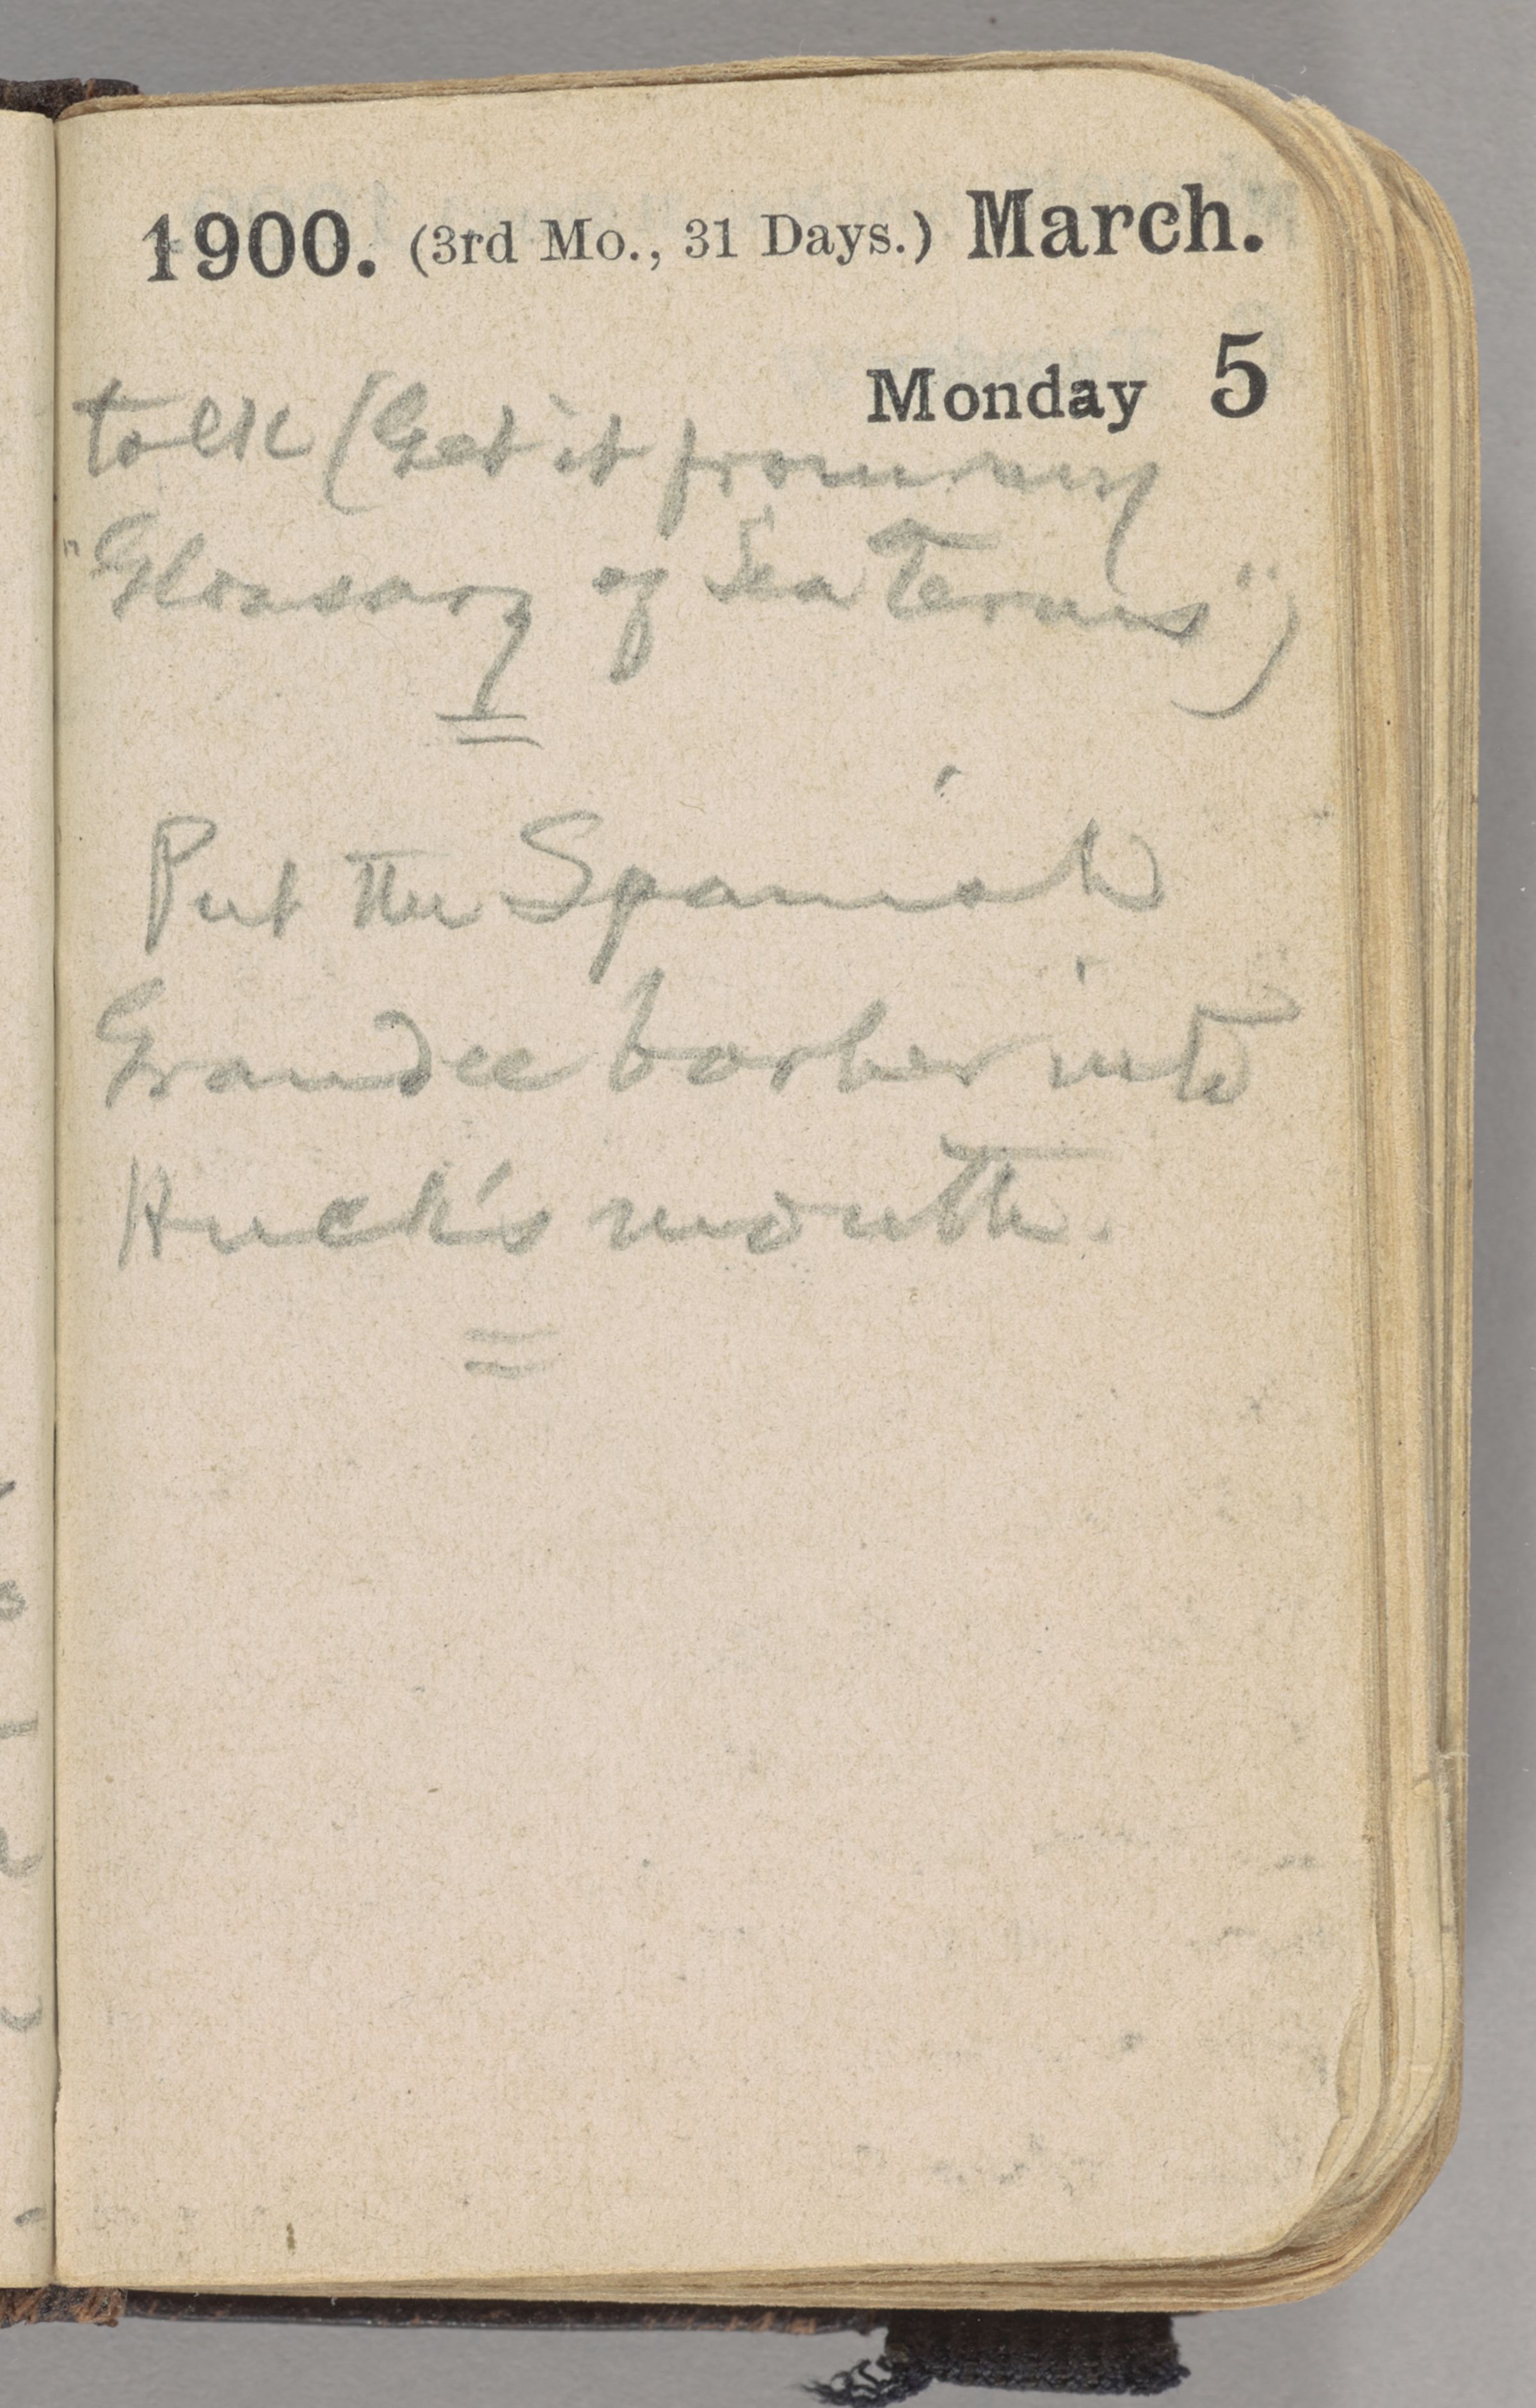 1900. (3rd Mo., 31 Days.) March.
Monday 5
talk (Get it from my
"Glossary of Sea Terms")
Put the Spanish
Grandee barber into
Huck's mouth.